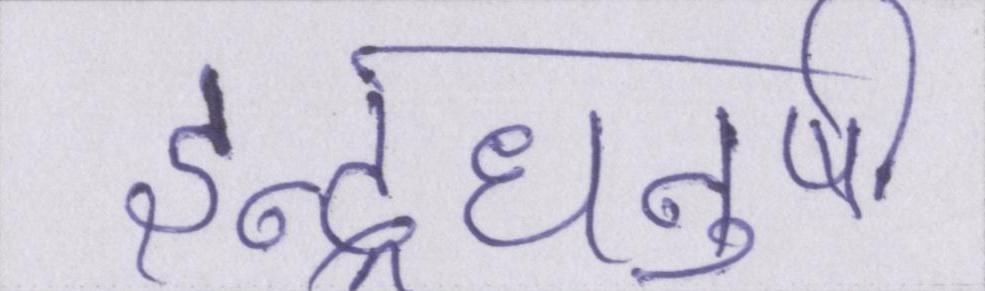 इन्द्रधनुषी